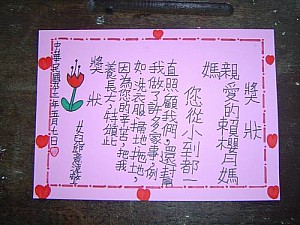 獎狀
親愛的賴櫻月媽
媽
您從小到都一
直照顧我們,還封
我做了許多家事,例
如:洗衣服、掃地、拖地,
因為您的辛苦,把我
養長大,特頒此
獎狀
女兒
中華民國
年五月七日